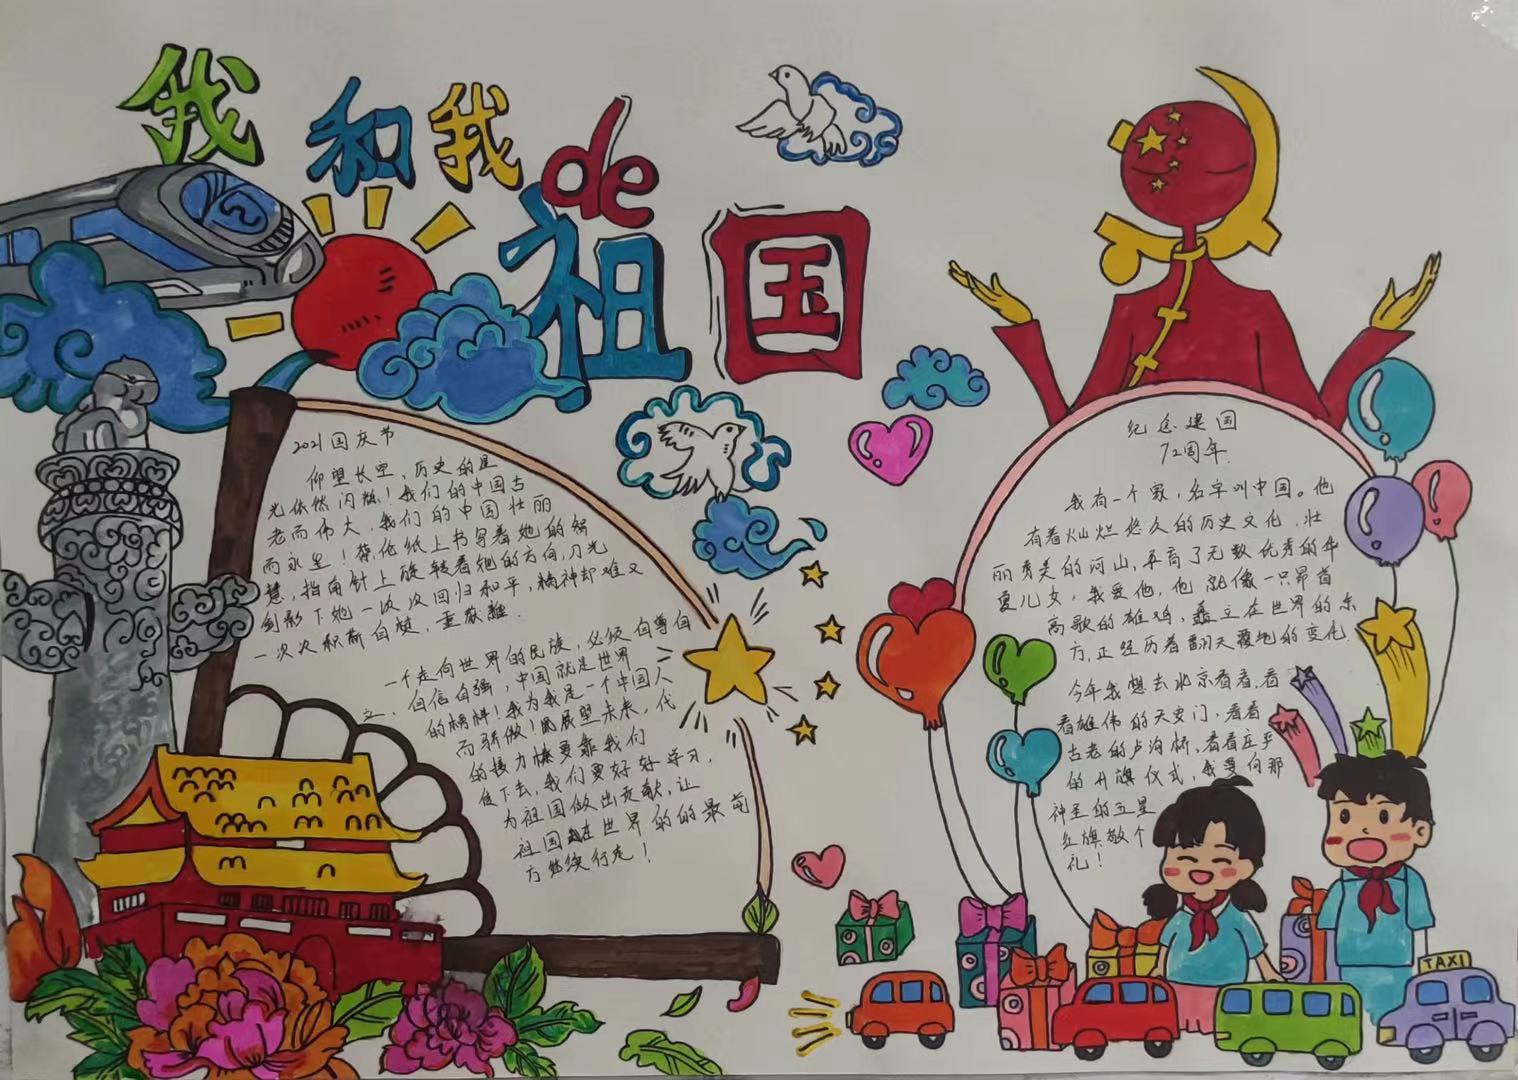 我和我de祖国
2021国庆节
仰望长空、历史的星
光依然闪烁！我们的中国古
老而伟大，我们的中国壮丽
而永生！莽伦纸上书写着她的智
慧，指南针上旋转着她的方向，刀光
剑影下她一次次回归和平，精神却难又
一次次积新自
一个走向世界的民族，必须自尊自
立、自信自强，中国就是世界
的榜样！我为我是一个中国人
而骄傲！展望未来，代
的接力棒要靠我们
传下去，我们要好好学习，
为祖国做出贡献，让
祖国在世界的的最前
方继续行走！
纪念建国
72周年
我有一个家，名字叫中国。他
有着灿烂悠久的历史文化，壮
丽秀美的河山，再育了无数优秀的华
夏儿女，我爱他，他就像一只昂首
高歌的雄鸡，矗立在世界的东
方，正经历着翻天覆地的变化
今年我想去北京看看，看
看雄伟的天安门，看看
古老的卢沟桥，看看庄严
的升旗仪式，我要向那
神圣的五星
红旗敬个
礼！
TAXI